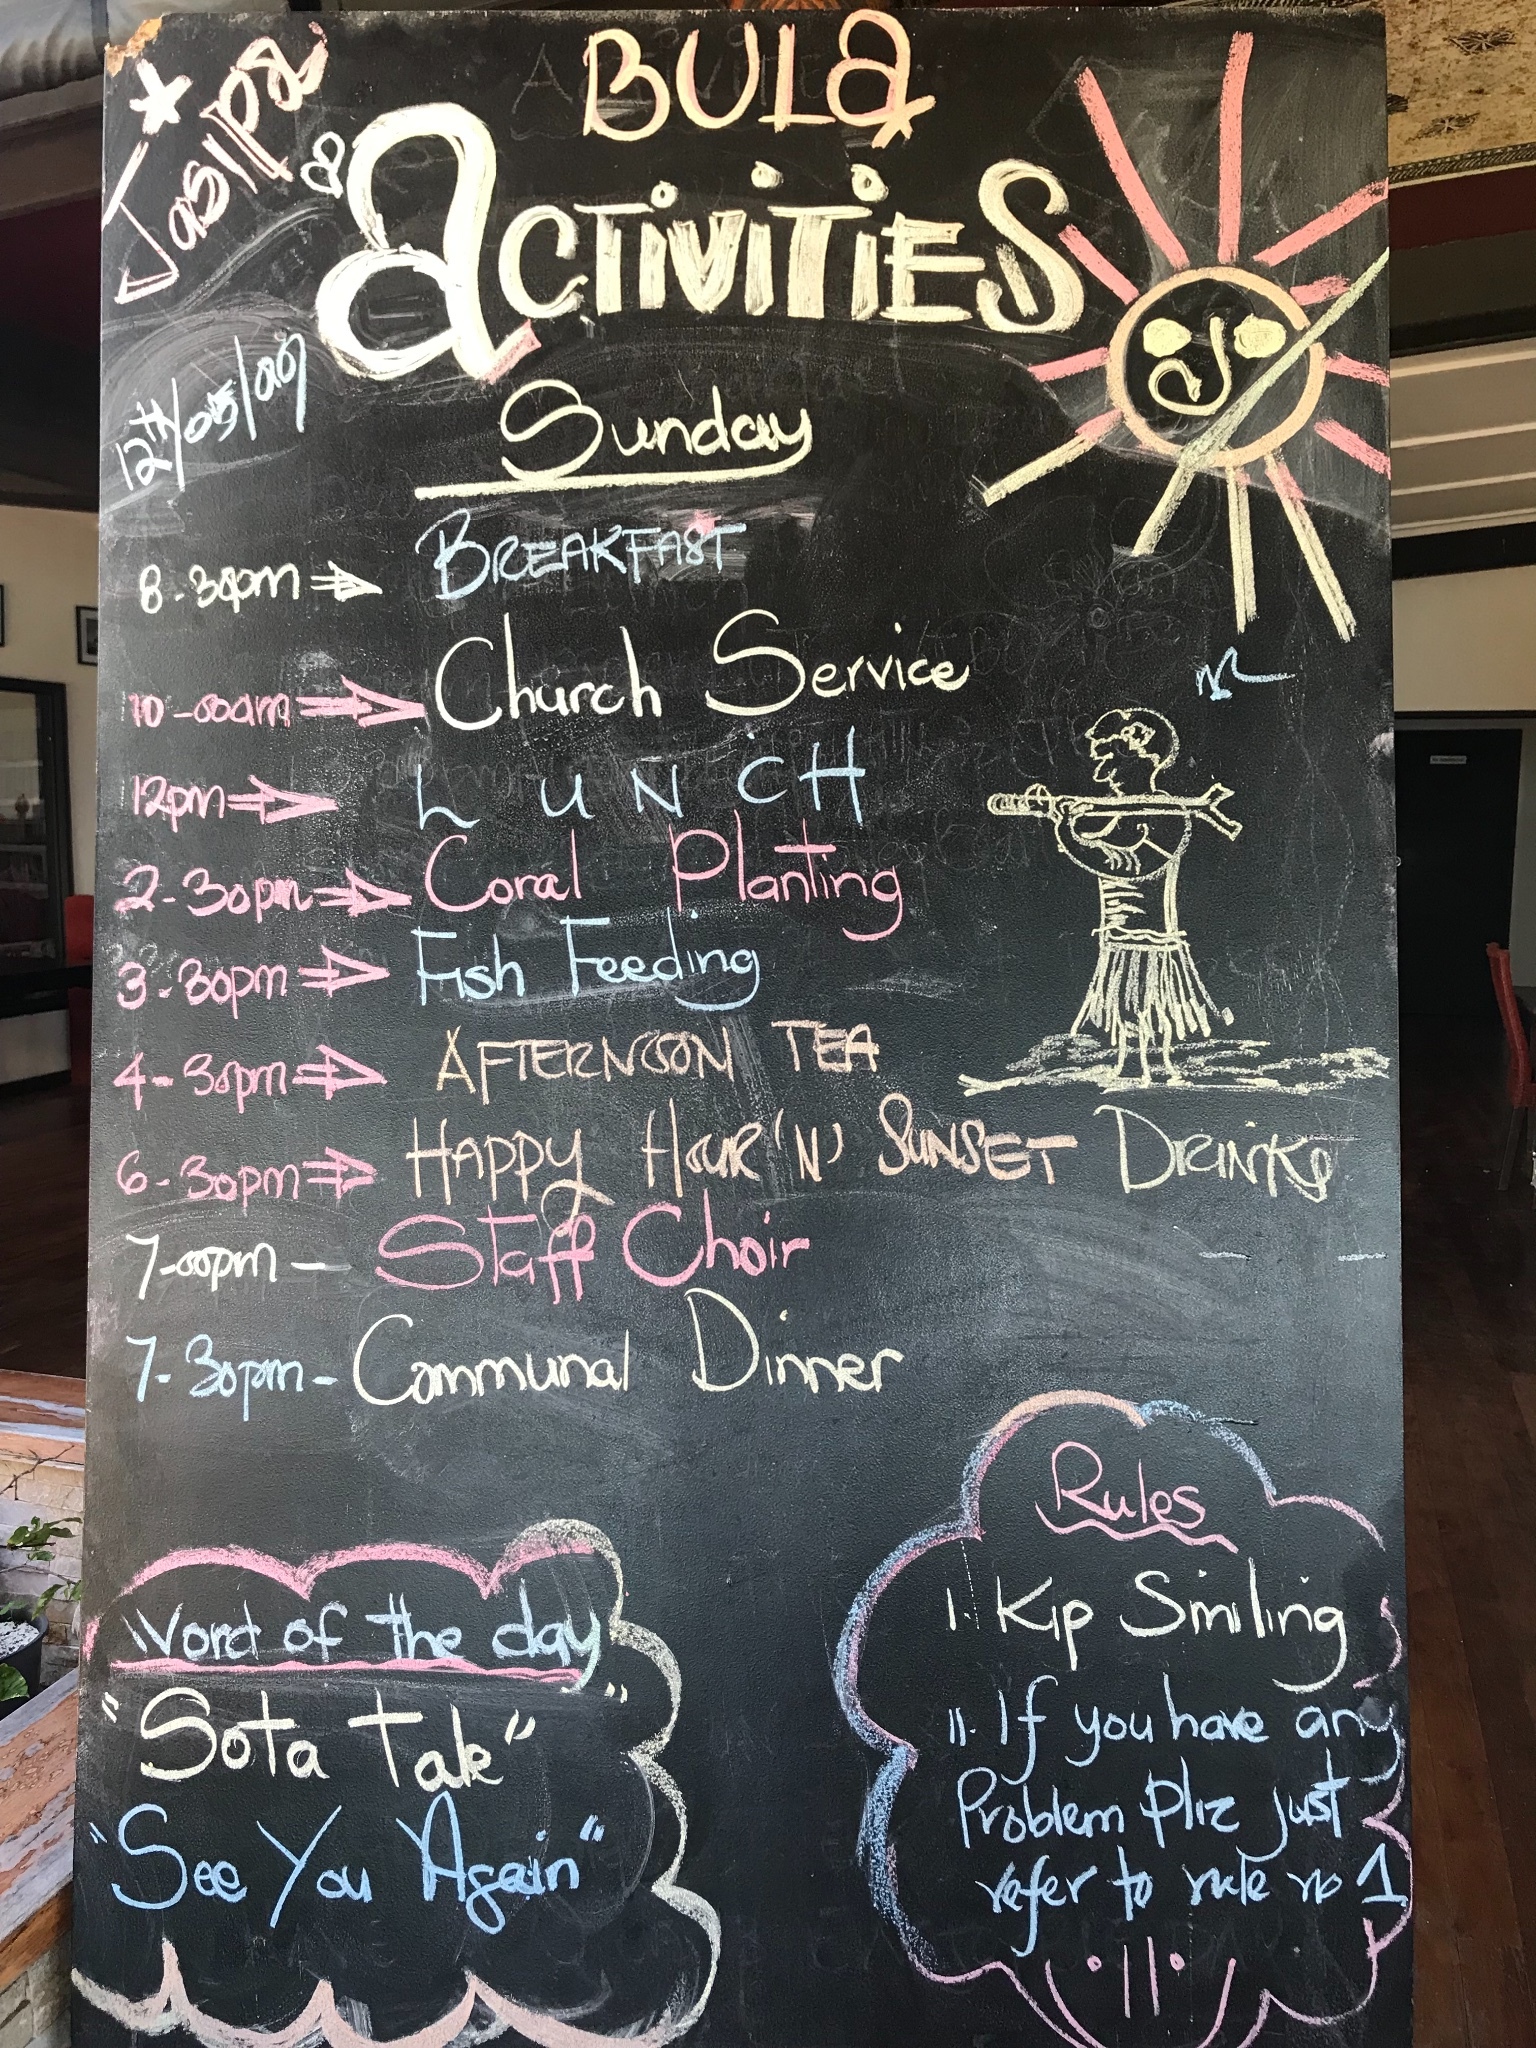 BULA
ACTIVITIES
Sunday
8-30pm BREAKFAST
10-00am Church Service
12pm LUNCH
2-30pm Coral Planting
3-30pm Fish Feeding
4-30pm AFTERNOON TEA
6-30pm HAPPY HOUR 'N' SUNSET DRINKS
7-00pm - Staff Choir
7-30pm - Communal Dinner
Word of the day
"Sota Tale"
"See You Again"
Rules
I. Kip Smiling
II. If you have any
Problem Pliz just
refer to rule no 1